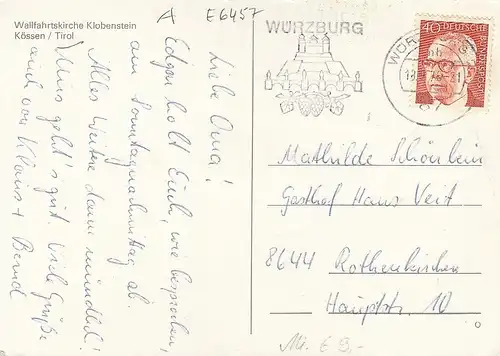 Wallfahrtskirche Klobenstein
Kössen / Tirol
A E6457
WÜRZBURG
WÜRZ
40
DEUTSCHE BUNDESPOST
87
Liebe Oma!
Edgar holt Euch, wie besprochen,
am Sonntagnachmittag ab.
Alles Weitere dann mündlich!
Uns geht's gut. Viele Grüße
auch von Klaus + Bernd
Mathilde Schönlein
Gasthof Hans Veit
8644 Rothenkirchen
Hauptstr. 10
Mi. € 9,-